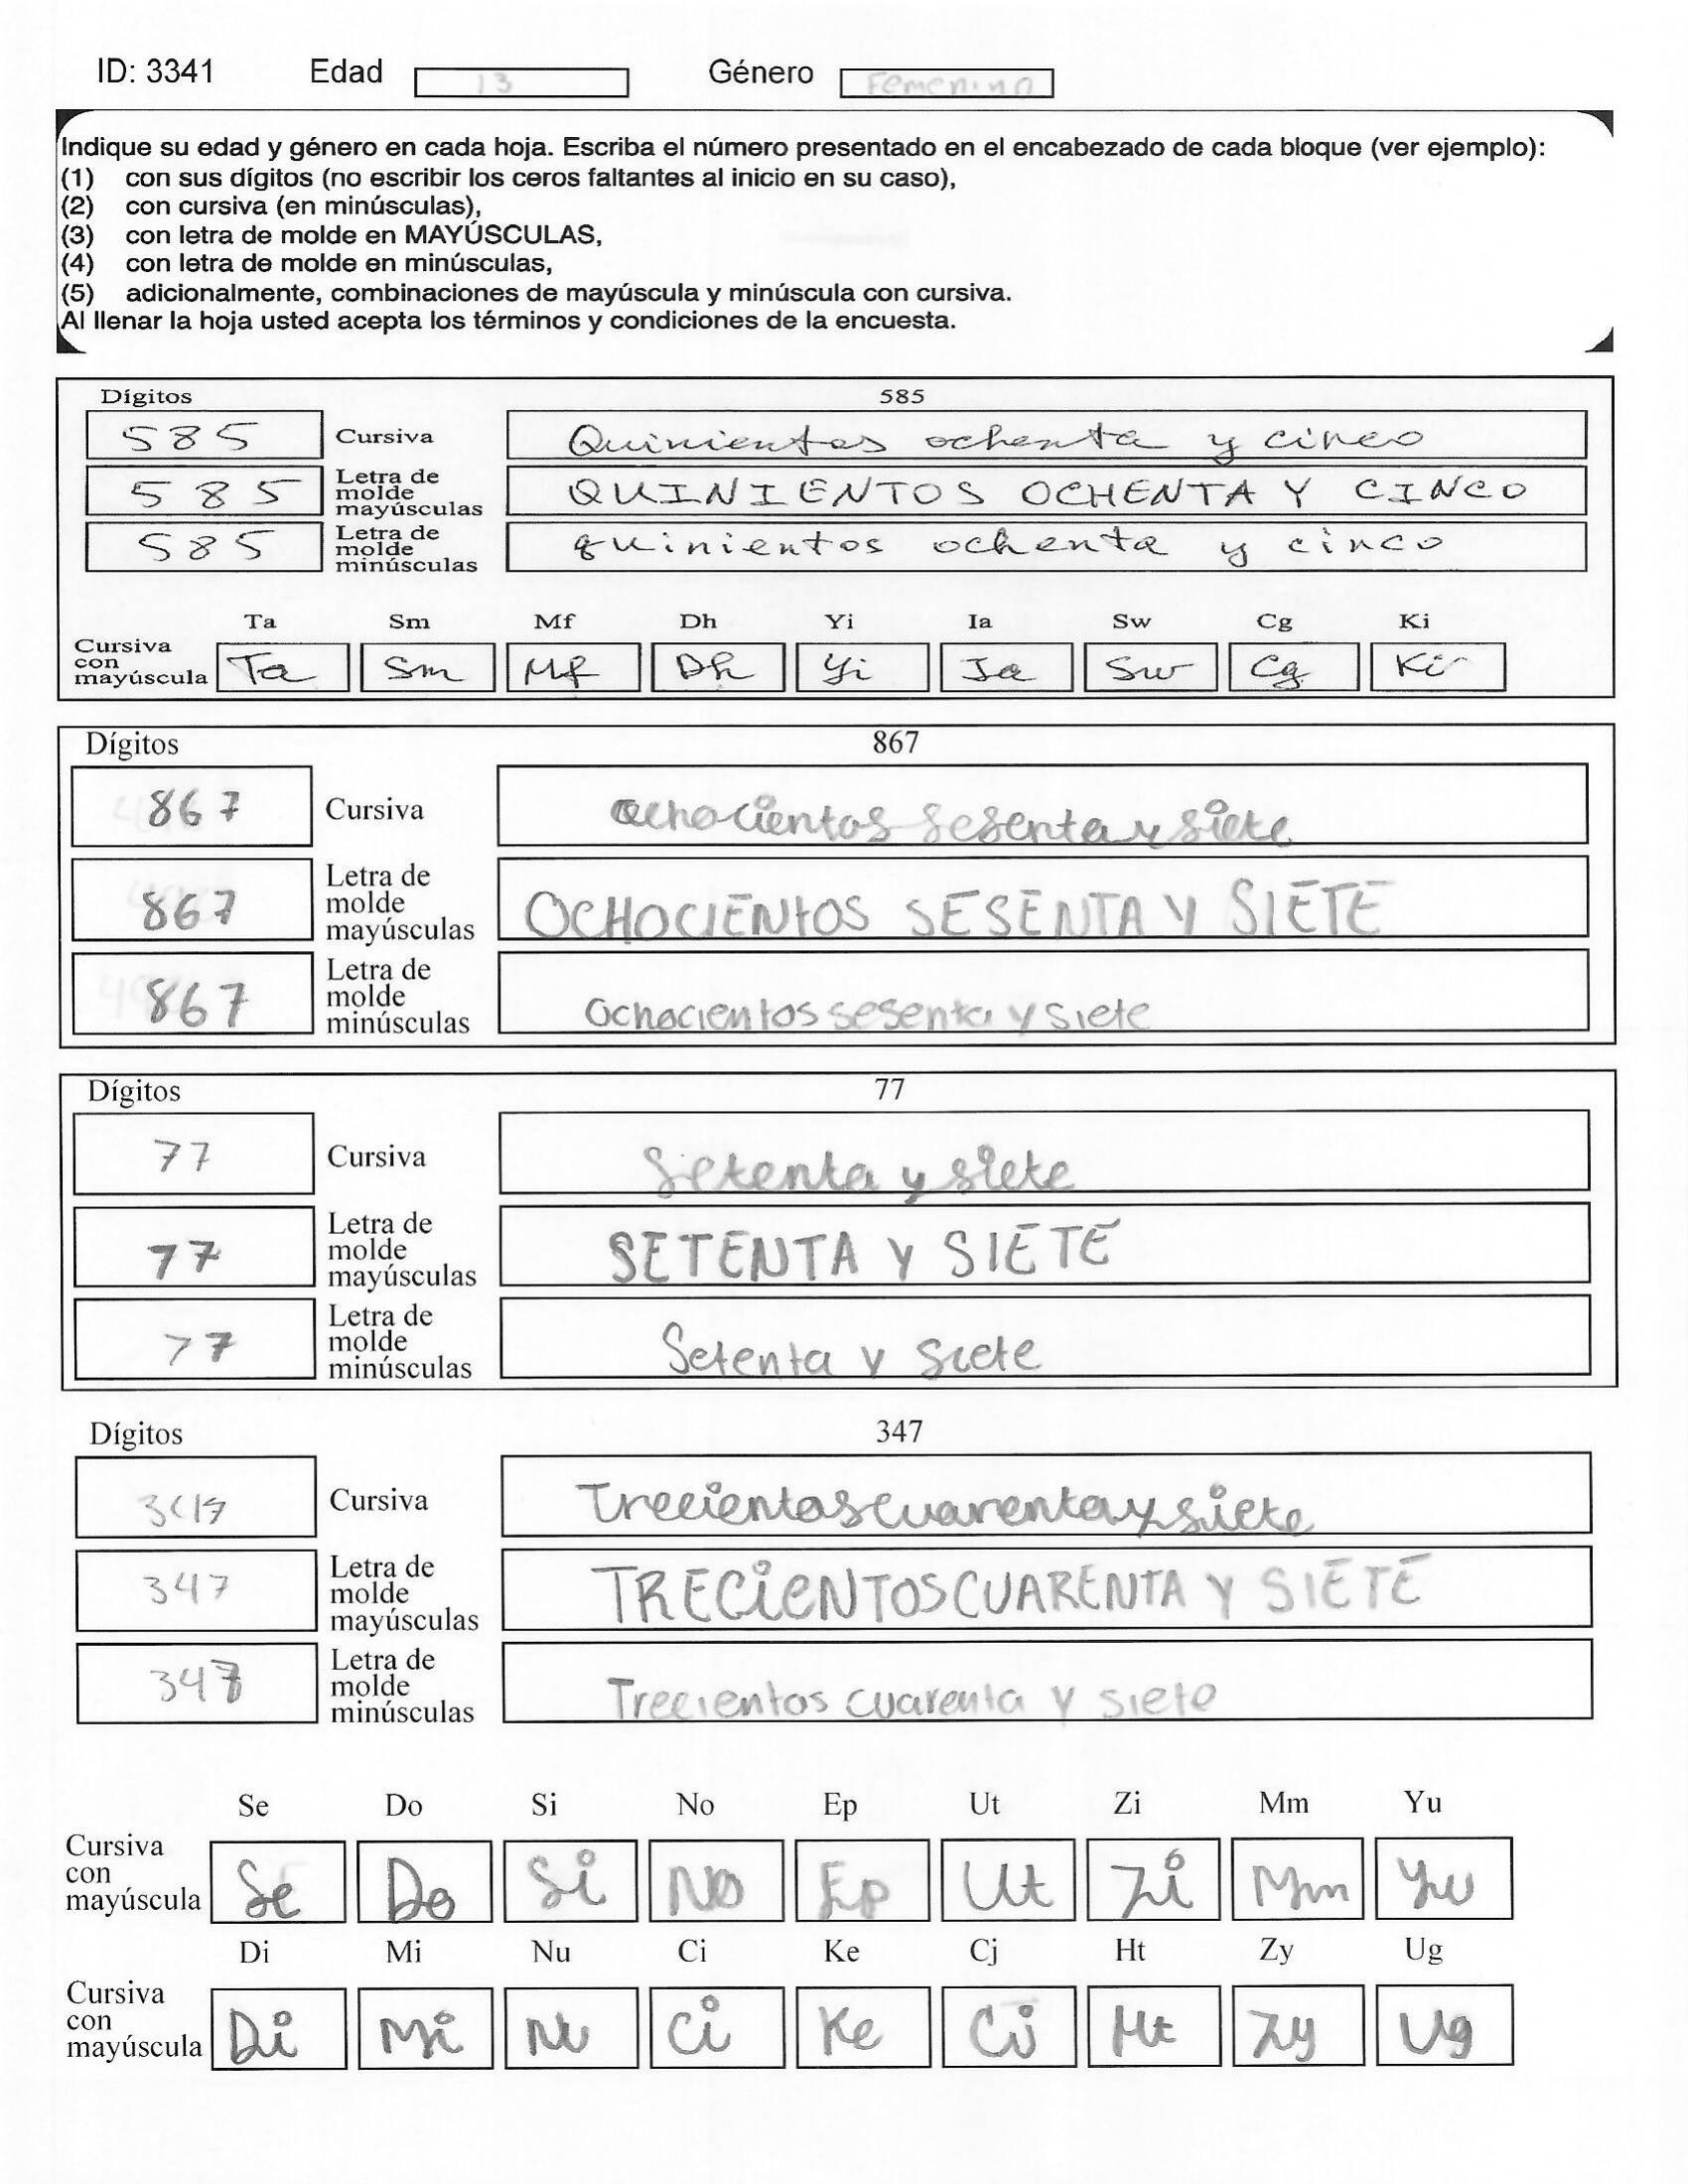 ID: 3341 Edad 13 Género Femenino
Indique su edad y género en cada hoja. Escriba el número presentado en el encabezado de cada bloque (ver ejemplo):
(1) con sus dígitos (no escribir los ceros faltantes al inicio en su caso),
(2) con cursiva (en minúsculas),
(3) con letra de molde en MAYÚSCULAS,
(4) con letra de molde en minúsculas,
(5) adicionalmente, combinaciones de mayúscula y minúscula con cursiva.
Al llenar la hoja usted acepta los términos y condiciones de la encuesta.
Dígitos 585
585 Cursiva Quinientos ochenta y cinco
585 Letra de molde mayúsculas QUINIENTOS OCHENTA Y CINCO
585 Letra de molde minúsculas quinientos ochenta y cinco
Ta Sm Mf Dh Yi Ia Sw Cg Ki
Cursiva con mayúscula Ta Sm Mf Dh Yi Ia Sw Cg Ki
Dígitos 867
867 Cursiva Ochocientos sesenta y siete
867 Letra de molde mayúsculas OCHOCIENtOS SESENTA Y SIETE
867 Letra de molde minúsculas Ochocientos sesenta y siete
Dígitos 77
77 Cursiva Setenta y siete
77 Letra de molde mayúsculas SETENTA Y SIETE
77 Letra de molde minúsculas Setenta y siete
Dígitos 347
347 Cursiva Trecientos cuarenta y siete
347 Letra de molde mayúsculas TRECiENTOS CUARENTA Y SIETE
347 Letra de molde minúsculas Trecientos cuarenta y siete
Se Do Si No Ep Ut Zi Mm Yu
Cursiva con mayúscula Se Do Si No Ep Ut Zi Mm Yu
Di Mi Nu Ci Ke Cj Ht Zy Ug
Cursiva con mayúscula Di Mi Nu Ci Ke Cj Ht Zy Ug